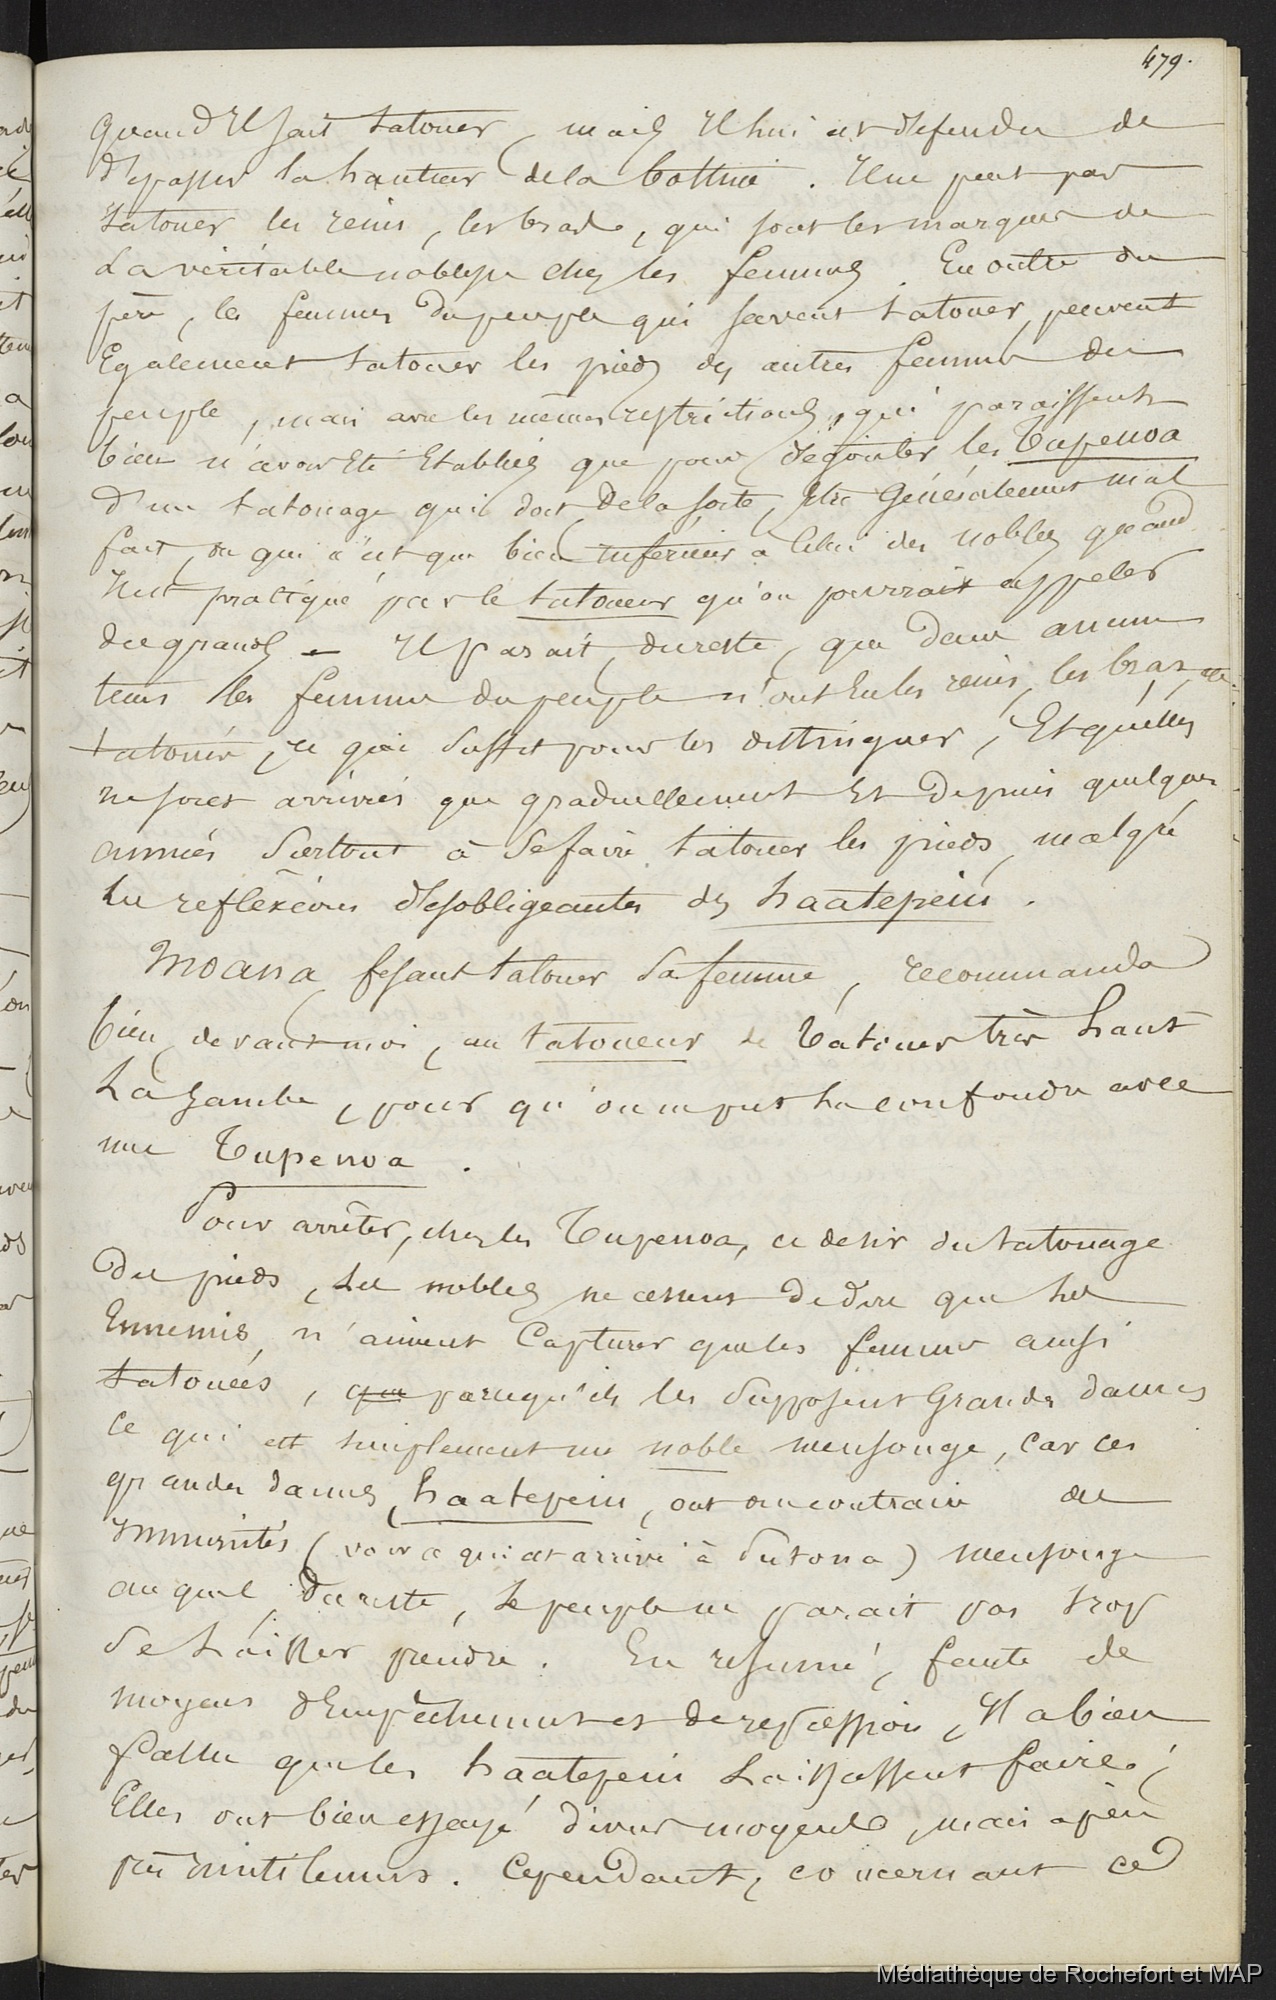 479.
quand Il sait tatouer, mais Il lui est défendu de
dépasser la hauteur de la bottine. Il ne peut pas
tatouer les reins, les bras, qui sont les marques de
la véritable noblesse chez les femmes. En outre du
père, les femmes du peuple qui savent tatouer, peuvent
Egalement tatouer les pieds des autres femmes du
peuple, mais avec les mêmes restrictions, qui paraissent
bien n'avoir Eté Etablies que pour dégoûter les Tupenoa
d'un tatouage qui doit, de la sorte, être Généralement mal
fait, ou qui n'est que bien inférieur à celui des nobles quand
Il est pratiqué par le tatoueur qu'on pourrait appeler
des grands – Il parait, du reste, que dans aucun
tems les femmes du peuple n'ont Eu les reins, les bras, etc.
tatoués, ce qui suffit pour les distinguer, Et qu'elles
ne sont arrivées que graduellement Et depuis quelques
années surtout à se faire tatouer les pieds, malgré
les reflexions désobligeantes des haatepeiu.
Moana fesant tatouer sa femme, recommanda
bien, devant moi, au tatoueur de tatouer très haut
la jambe, pour qu'on ne put la confondre avec
une Tupenoa.
Pour arrêter, chez les Tupenoa, ce desir du tatouage
des pieds, les nobles ne cessent de dire que les
Ennemis n'aiment Capturer que les femmes ainsi
tatouées, que parcequ'ils les supposent Grandes dames
ce qui est simplement un noble mensonge, car ces
grandes dames, haatepeiu, ont au contraire des
immunités (voir ce qui est arrivé à Putona) mensonge
auquel, du reste, le peuple ne parait pas trop
se laisser prendre. En resumé, faute de
moyens d'Empêchement et de repression, Il a bien
fallu que les haatepeiu laissassent faire;
Elles ont bien essayé divers moyens, mais à peu
près inutilement. Cependant, concernant ce
Médiathèque de Rochefort et MAP